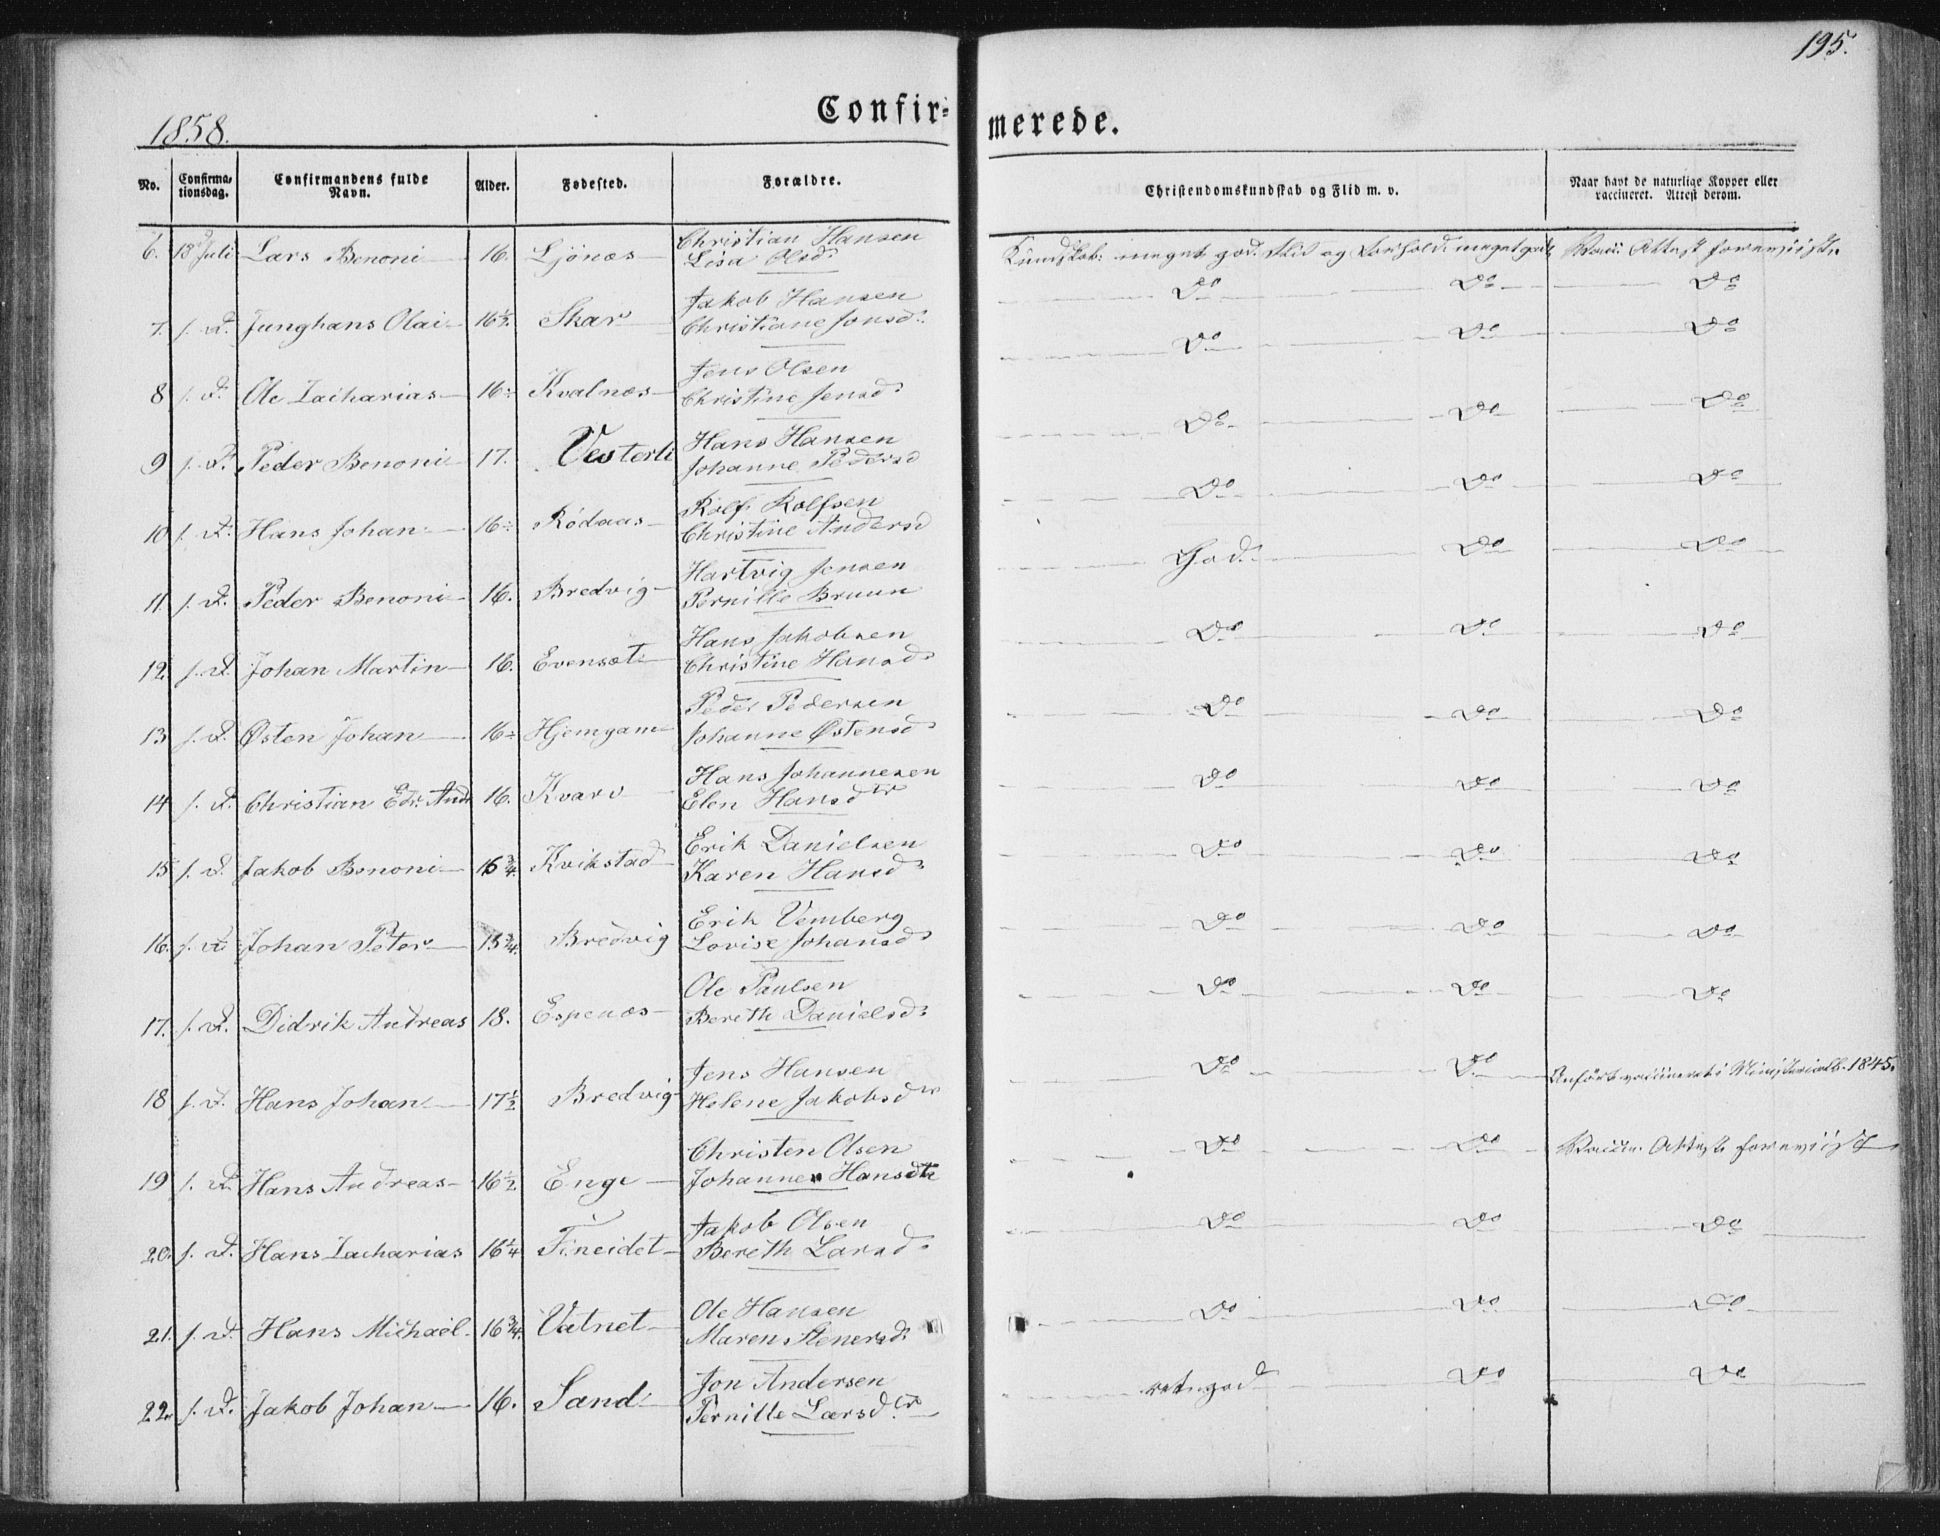 195.
Confirmerede.
1858.
No. Confirmationsdag. Confirmandens fulde Navn. Alder. Fødested. Forældre. Christendomskundskab og Flid m. v. Naar havt de naturlige Kopper eller vaccineret. Attest derom.
6. 18 Juli Lars Benoni 16. Ljönæs Christian Hansen Lisa Olsd: Kundskab: meget god. Flid og Forhold: meget god Attest forevist.
7. s. D. Junghans Olai 16½. Skar Jakob Hansen Christiane Jonsd: Do Do Do
8 s. D. Ole Zacharias 16: Kvalnæs Jens Olsen Christine Jensd: Do Do Do
9 s. D. Peder Benoni 17. Vesterli Hans Hansen Johanne Pedersd Do Do Do
10 s. D. Hans Johan 16: Rödaas Rolf Rolfsen Christine Andersd Do Do Do
11 s. D. Peder Benoni 16. Bredvig Hartvig Jensen Pernille Bruun God. Do Do
12. s. D. Johan Martin 16. Evensæt Hans Jakobsen Christine Hansd: Do Do Do
13 s. D. Østen Johan 16: Hjemgam Peder Pedersen Johanne Østensd: Do Do Do
14 s. D. Christian Edv. Andr 16. Kvarv Hans Johannesen Elen Hansdtr Do Do Do
15 s. D. Jakob Benoni 16¾. Kvikstad Erik Danielsen Karen Hansd: Do Do Do
16. s. D. Johan Peter 15¾. Bredvig Erik Vemberg Lovise Johansd: Do Do Do
17. s. D. Didrik Andreas 18. Espenæs Ole Paulsen Bereth Danielsd: Do Do Do
18 s. D. Hans Johan 17½ Bredvig Jens Hansen Helene Jakobsdtr Do Do Anført vaccineret i Ministerialb. 1845.
19 s. D. Hans Andreas 16½ Enge Christen Olsen Johanne Hansdtr Do Do Attest forevist
20. s. D. Hans Zacharias 16¼ Fineidet Jakob Olsen Bereth Larsd: Do Do Do
21. s. D. Hans Michaël 16¾. Vatnet Ole Hansen Maren Stenersd: Do Do Do
22. s. D. Jakob Johan 16. Sand Jon Andersen Pernille Larsdtr retngod Do Do